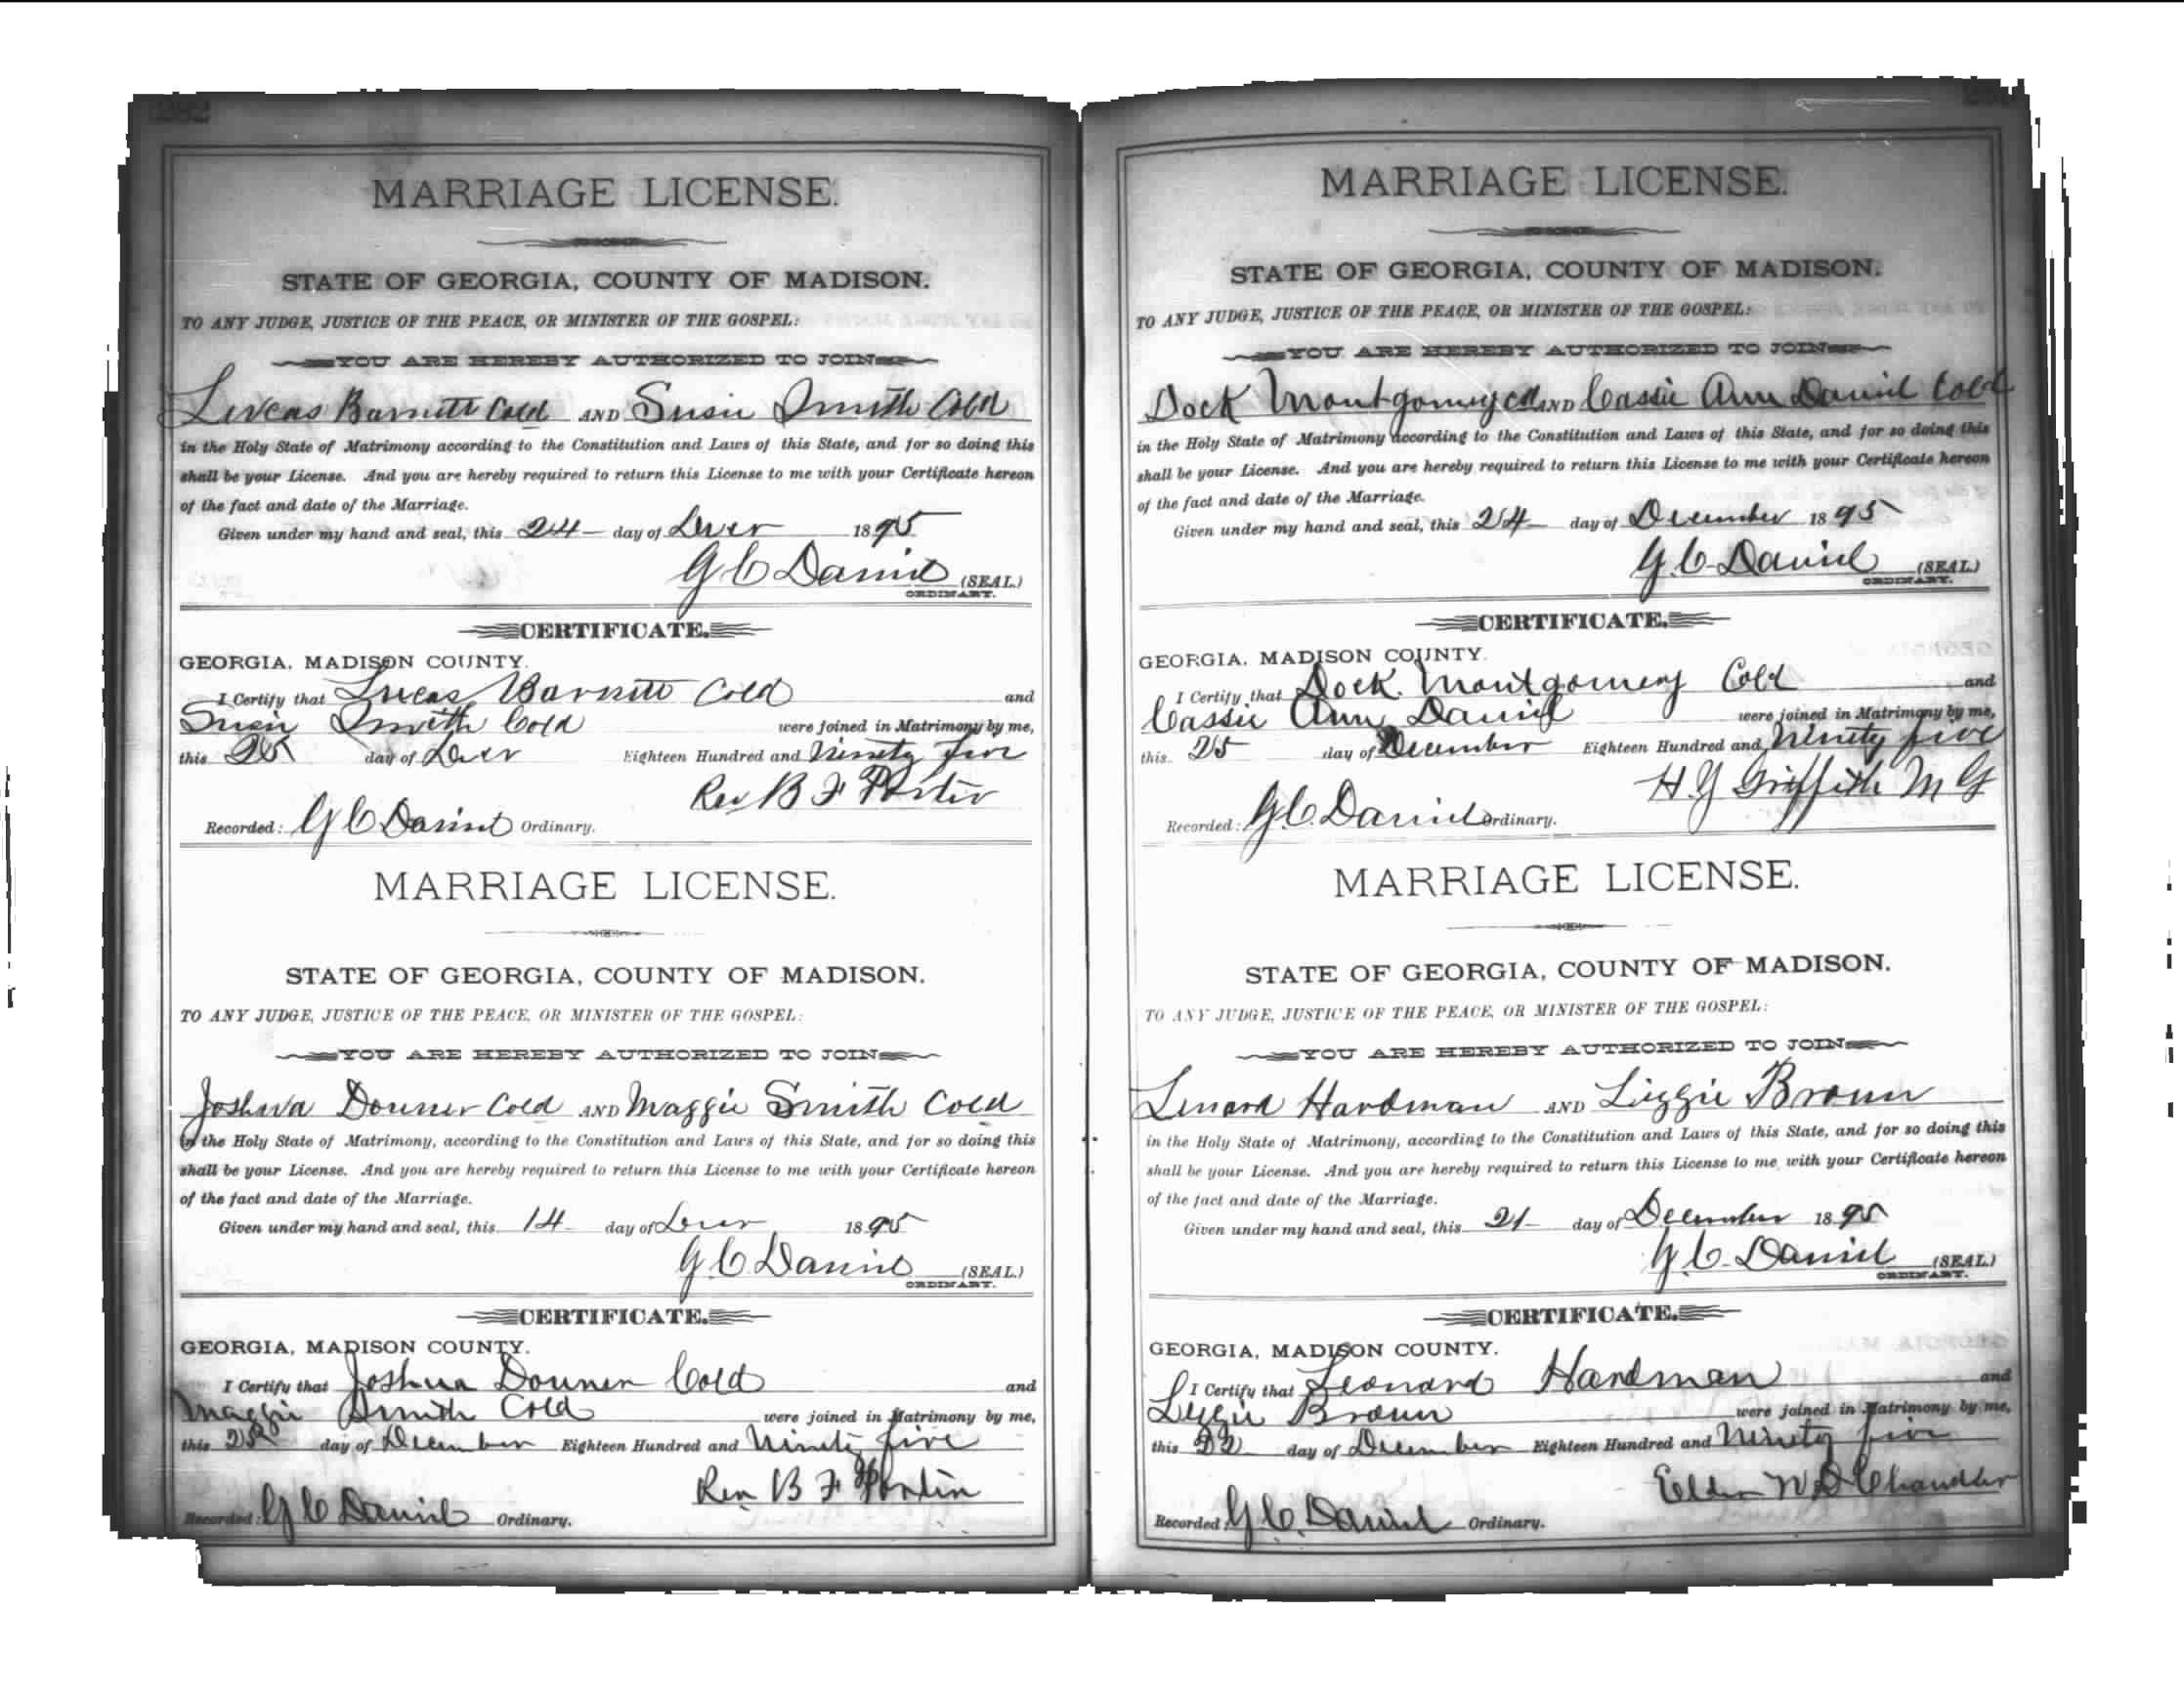 282
MARRIAGE LICENSE.
STATE OF GEORGIA, COUNTY OF MADISON.
TO ANY JUDGE, JUSTICE OF THE PEACE, OR MINISTER OF THE GOSPEL:
YOU ARE HEREBY AUTHORIZED TO JOIN
Lucas Barnett Cold AND Susie Smith Cold
in the Holy State of Matrimony according to the Constitution and Laws of this State, and for so doing this
shall be your License. And you are hereby required to return this License to me with your Certificate hereon
of the fact and date of the Marriage.
Given under my hand and seal, this 24 day of Decr 1895
G C Daniel (SEAL.)
ORDINARY.
CERTIFICATE.
GEORGIA, MADISON COUNTY.
I Certify that Lucas Barnett Cold and
Susie Smith Cold were joined in Matrimony by me,
this 25 day of Decr Eighteen Hundred and Ninety five
Rev B F Porter
Recorded: G C Daniel Ordinary.
MARRIAGE LICENSE.
STATE OF GEORGIA, COUNTY OF MADISON.
TO ANY JUDGE, JUSTICE OF THE PEACE, OR MINISTER OF THE GOSPEL:
YOU ARE HEREBY AUTHORIZED TO JOIN
Joshua Downer Cold AND Maggie Smith Cold
in the Holy State of Matrimony, according to the Constitution and Laws of this State, and for so doing this
shall be your License. And you are hereby required to return this License to me with your Certificate hereon
of the fact and date of the Marriage.
Given under my hand and seal, this 14 day of Decr 1895
G. C. Daniel (SEAL.)
ORDINARY.
CERTIFICATE.
GEORGIA, MADISON COUNTY.
I Certify that Joshua Downer Cold and
Maggie Smith Cold were joined in Matrimony by me,
this day of December Eighteen Hundred and Ninety five
Rev B F Porter
Recorded: G C Daniel Ordinary.
MARRIAGE LICENSE.
STATE OF GEORGIA, COUNTY OF MADISON.
TO ANY JUDGE, JUSTICE OF THE PEACE, OR MINISTER OF THE GOSPEL:
YOU ARE HEREBY AUTHORIZED TO JOIN
Dock Montgomery Cd AND Cassie Ann Daniel Cold
in the Holy State of Matrimony according to the Constitution and Laws of this State, and for so doing this
shall be your License. And you are hereby required to return this License to me with your Certificate hereon
of the fact and date of the Marriage.
Given under my hand and seal, this 24 day of December 1895
G. C. Daniel (SEAL.)
ORDINARY.
CERTIFICATE.
GEORGIA, MADISON COUNTY.
I Certify that Dock Montgomery Cold and
Cassie Ann Daniel were joined in Matrimony by me,
this 25 day of December Eighteen Hundred and Ninety five
H. Y Griffith M G
Recorded: G. C. Daniel Ordinary.
MARRIAGE LICENSE.
STATE OF GEORGIA, COUNTY OF MADISON.
TO ANY JUDGE, JUSTICE OF THE PEACE, OR MINISTER OF THE GOSPEL:
YOU ARE HEREBY AUTHORIZED TO JOIN
Lenard Hardman AND Lizzie Brown
in the Holy State of Matrimony, according to the Constitution and Laws of this State, and for so doing this
shall be your License. And you are hereby required to return this License to me with your Certificate hereon
of the fact and date of the Marriage.
Given under my hand and seal, this 21 day of December 1895
G. C. Daniel (SEAL.)
ORDINARY.
CERTIFICATE.
GEORGIA, MADISON COUNTY.
I Certify that Leonard Hardman and
Lizzie Brown were joined in Matrimony by me,
this 22 day of December Eighteen Hundred and Ninety five
Elder W D Chandler
Recorded G. C. Daniel Ordinary.